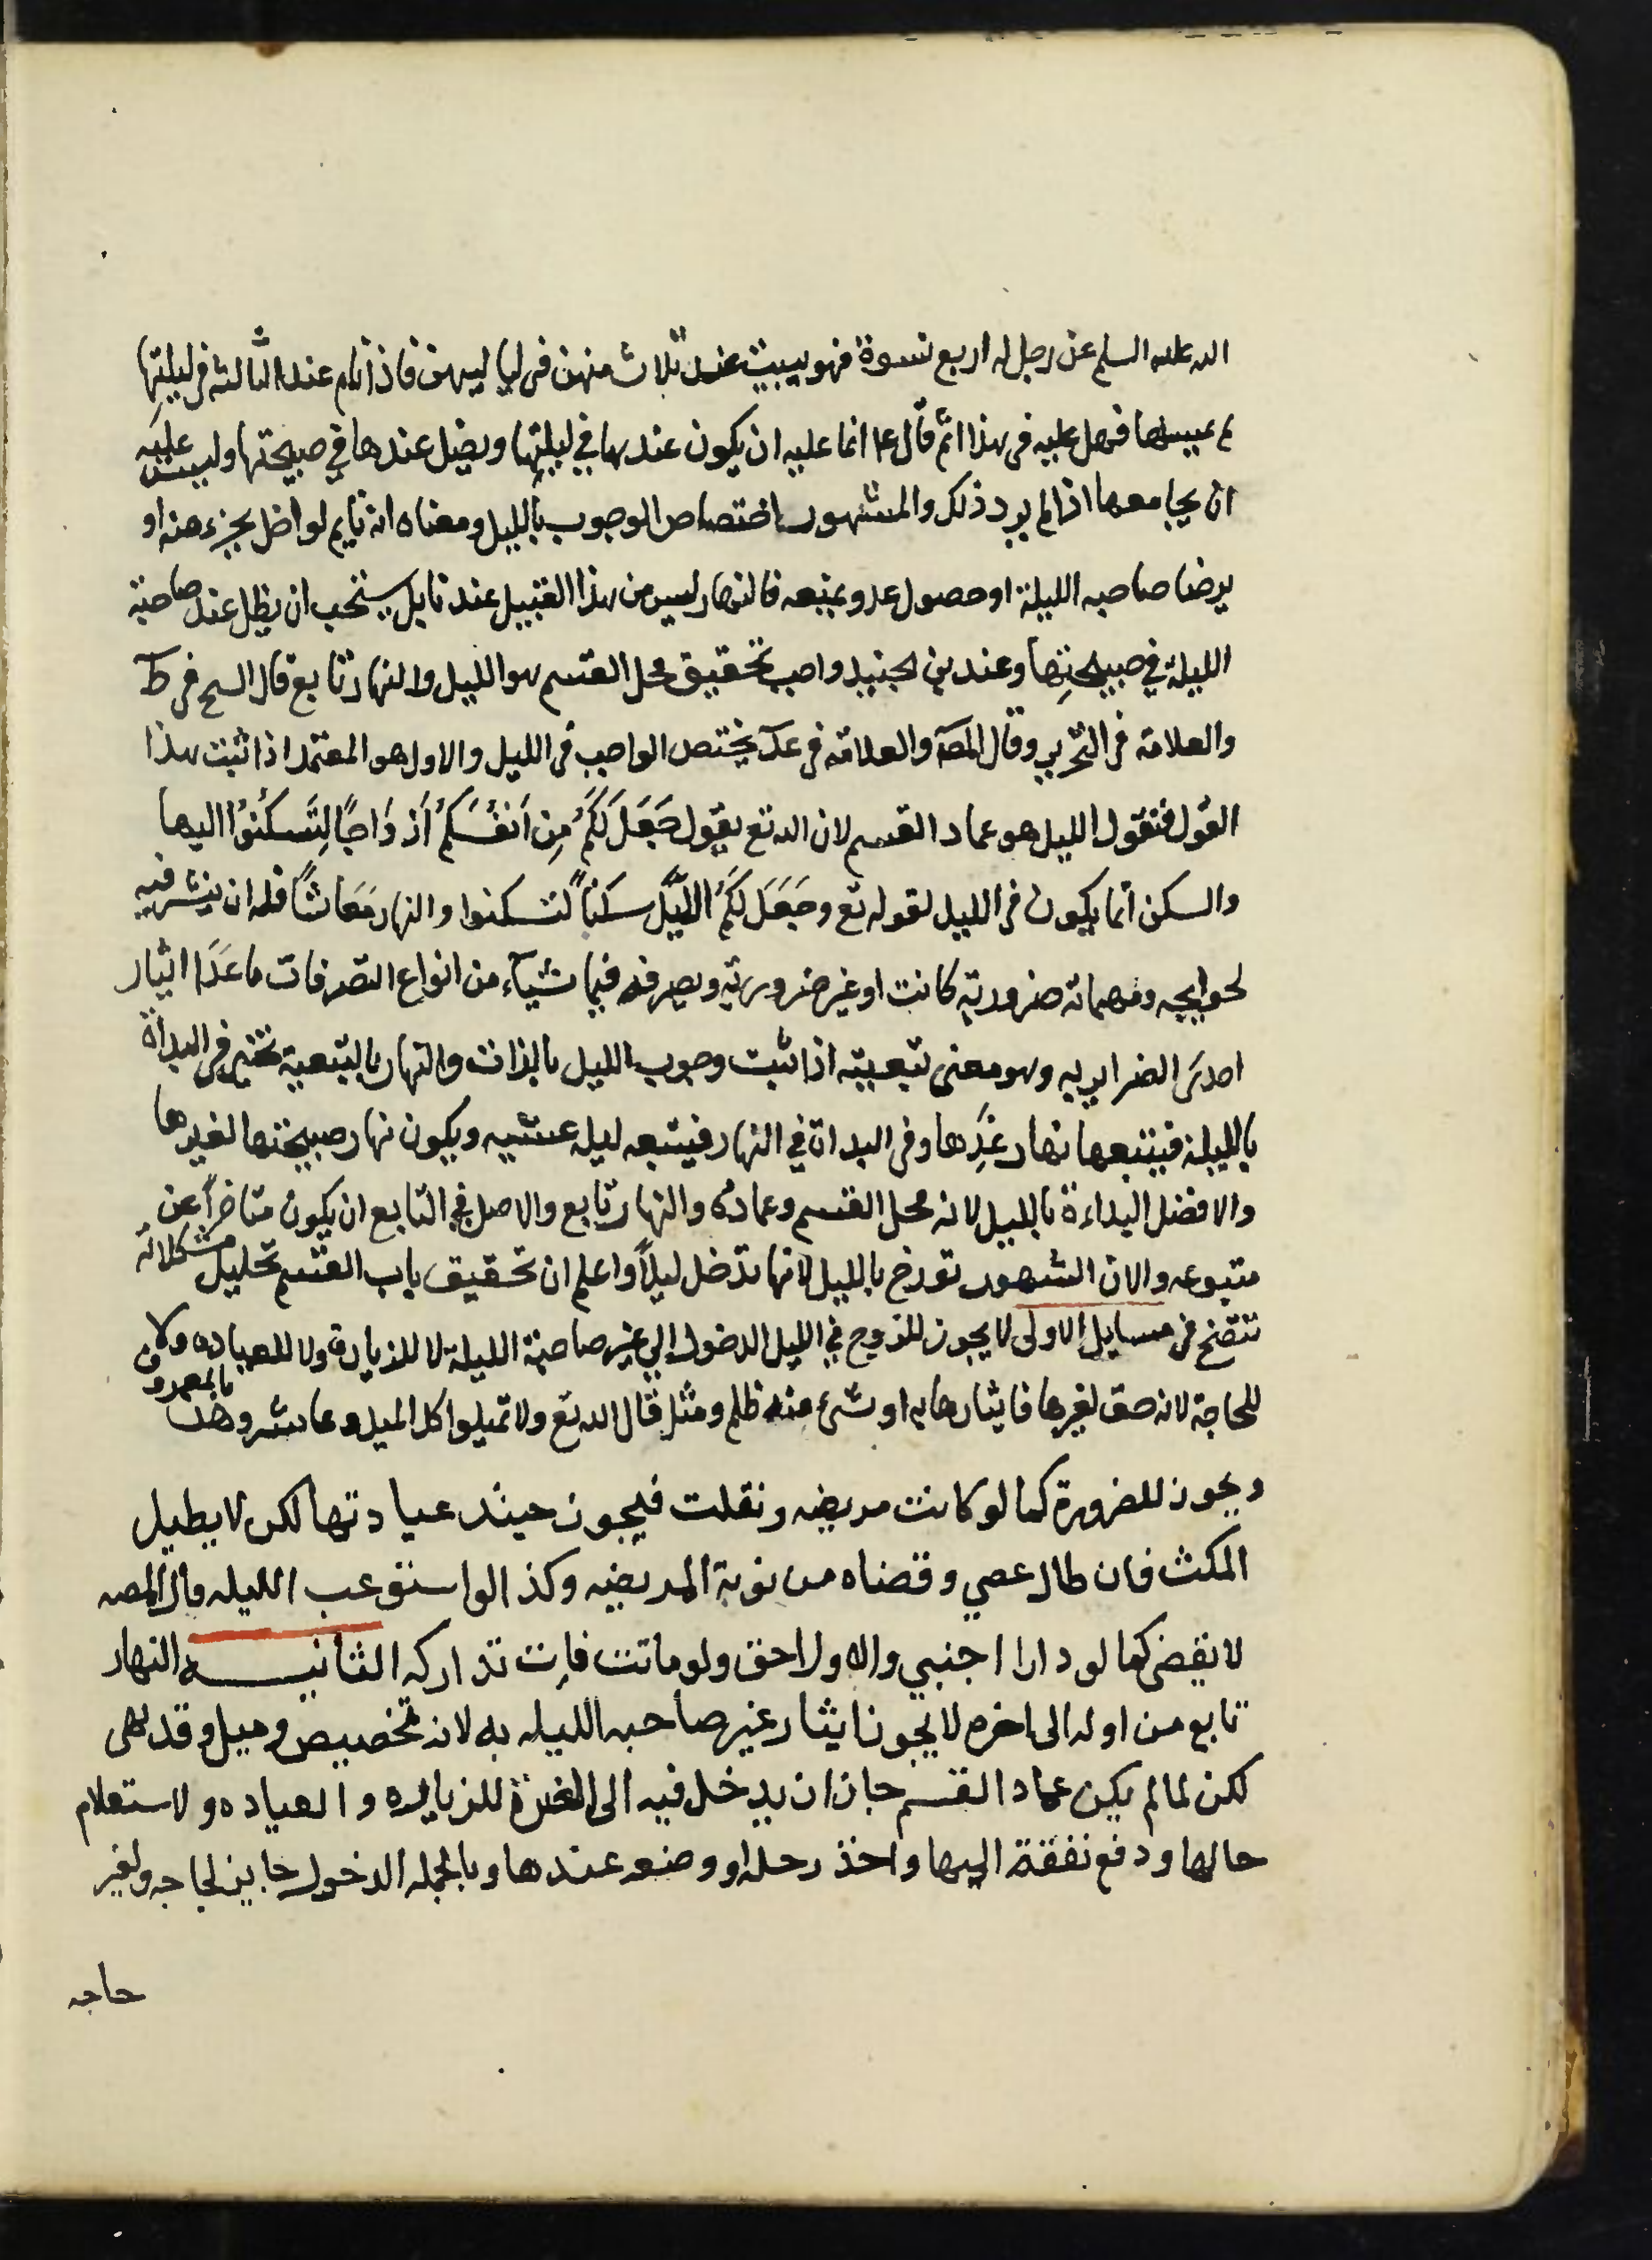 الله عليه السلم عن رجل له اربع نسوة فهو يبيت عند ثلاث منهن فى لياليهن فاذا نام عند الثالثه فى ليلتها
لم يمسها فهل عليه فى هذا اثم قال ع انما عليه ان يكون عندها في ليلتها ويضل عندها في صبيحتها وليس عليه
ان يجامعها اذا لم يرد ذلك والمشهور اختصاص الوجوب بالليل ومعناه انه ياثم لو اخل بجزء منه او
برضا صاحبه الليلة او حصول عدو يمنعه فالنهار ليس من هذا القبيل عند قايل يستحب ان يظل عند صاحبة
الليلة في صبيحتها وعند بن الجنيد واجب تحقيق محل القسم هو الليل والنهار تابع قال الشيخ فى ط
والعلامة فى التحرير وقال المصَه والعلامة فى عد يختص الواجب فى الليل والاول هو المعتمد اذا ثبت هذا
القول فنقول الليل هو عماد القسم لان الله تع يقول جَعَلَ لَكُم مِن اَنفُسِكُم اَزوَاجًا لِتَسكُنُوا اليها
والسكن انما يكون فى الليل لقوله تع وجَعَلَ لَكُمُ اللَّيلَ سكناً لتسكنوا والنهار مَعَاشًا فله ان ينشر فيه
لحوايجه ومهماته ضرورية كانت او غير ضرورية ويصرفه فيما شآء من انواع التصرفات ما عَدَا ايثار
احدى الضراير به وهو معنى تبعيته اذا ثبت وجوب الليل بالذات والنهار بالتبعية تخير فى البدأة
بالليلة فيتبعها نهار غَدِها وفى البداة في النهار فيتبعه ليل عشيه ويكون نهار صبيحتها لغيرها
والافضل البداءة بالليل لانه محل القسم وعماده والنهار تابع والاصل في التابع ان يكون متاخراً عن
متبوعه والان الشهور تورخ بالليل لانها تدخل ليلاً واعلم ان تحقيق باب القسم تحليل مشكلاته
تتضح فى مسايل الاولى لا يجوز للزوج في الليل الدخول إلى غير صاحبة الليلة لا للزيارة ولا للعياده ولا
للحاجة لانه حق لغيرها فايثارها به او شئ منه ظلم ومثله قال الله تع ولا تميلوا كل الميل وعاشروهن بالمعروف
ويجوز للضرورة كما لو كانت مريضه ونقلت فيجوز حينئد عيادتها لكن لا يطيل
المكث فان طال عصي وقضاه من نوبة المريضه وكذا لو استوعب الليله وقال المصه
لا يقضى كما لو دارا اجنبي والاول احق ولو ماتت فات تداركه الثانيه النهار
تابع من اوله الى اخره لا يجوز ايثار غير صاحبه الليله به لانه تخصيص وميل وقد نهى
لكن لما لم يكن عماد القسم جاز ان يدخل فيه الى الضرة للزياره والعياده ولاستعلام
حالها ودفع نفقة اليها واخذ رحله او وضعه عندها وبالجمله الدخول جايز لحاجه ولغير
حاجه